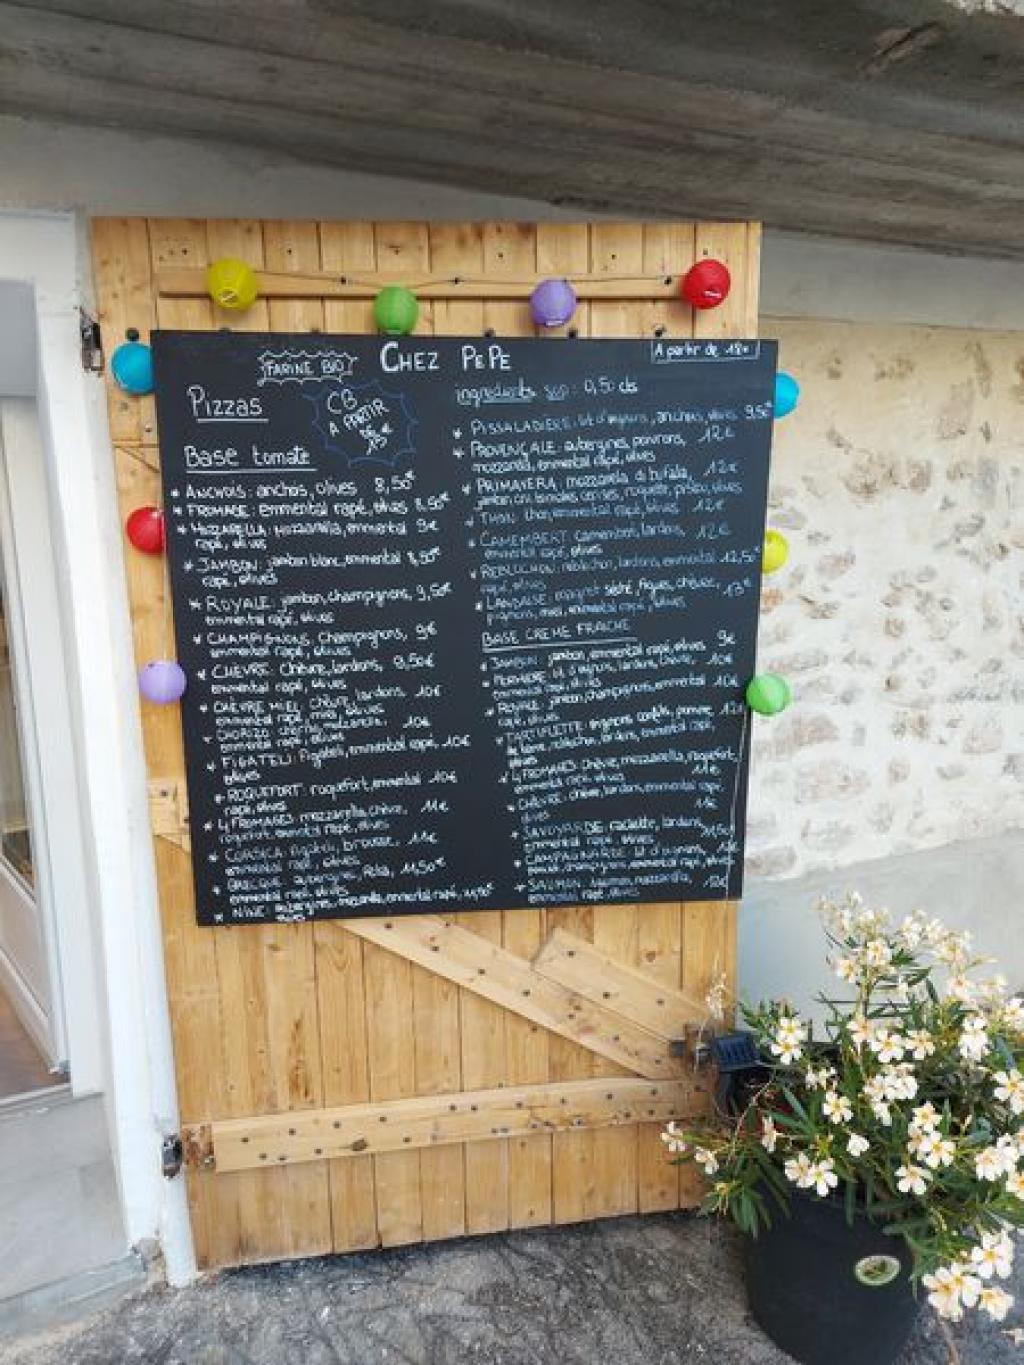 FARINE BIO
CHEZ PEPE
A partir de 18h
Pizzas
CB
A PARTIR
DE
15€
ingredients sup : 0,50 cts
Base tomate
* ANCHOIS: anchois, olives 8,50€
* FROMAGE: emmental rapé, olives 8,50€
* MOZZARELLA: mozzarella, emmental 9€
rapé, olives
* JAMBON: jambon blanc, emmental 8,50€
rapé, olives
* ROYALE: jambon, champignons, 9,50€
emmental rapé, olives
* CHAMPIGNONS: champignons, 9€
emmental rapé, olives
* CHÈVRE: chèvre, lardons, 9,50€
emmental rapé, olives
* CHÈVRE MIEL: chèvre, lardons, 10€
emmental rapé, miel, olives
* CHORIZO: chorizo, mozzarella, 10€
emmental rapé, olives
* FIGATELI: Figateli, emmental rapé, 10€
olives
* ROQUEFORT: roquefort, emmental 10€
rapé, olives
* 4 FROMAGES: mozzarella, chèvre, 11€
roquefort, emmental rapé, olives
* CORSICA: figateli, brousse, 11€
emmental rapé, olives
* GRECQUE: aubergines, feta, 11,50€
emmental rapé, olives
* NINE: aubergines, mozzarella, emmental rapé, 11,50€
olives
* PISSALADIÈRE: lit d'oignons, anchois, olives 9,50€
* PROVENÇALE: aubergines, poivrons, 12€
mozzarella, emmental rapé, olives
* PRIMAVERA: mozzarella di bufala, 12€
jambon cru, tomates cerises, roquette, pistou, olives
* THON: thon, emmental rapé, olives 12€
* CAMEMBERT: camembert, lardons, 12€
emmental rapé, olives
* REBLOCHON: reblochon, lardons, emmental 12,50€
rapé, olives
* LANDAISE: magret séché, figues, chèvre, 13€
pignons, miel, emmental rapé, olives
BASE CREME FRAICHE
* JAMBON: jambon, emmental rapé, olives 9€
* FERMIERE: lit d'oignons, lardons, chèvre, 10€
emmental rapé, olives
* ROYALE: jambon, champignons, emmental 10€
rapé, olives
* TARTIFLETTE: oignons confits, pomme 12€
de terre, reblochon, lardons, emmental rapé,
olives
* 4 FROMAGES: chèvre, mozzarella, roquefort,
emmental rapé, olives 11€
* CHÈVRE: chèvre, lardons, emmental rapé,
olives
* SAVOYARDE: raclette, lardons,
emmental rapé, olives
* CAMPAGNARDE: lit d'oignons,
champignons, emmental rapé, olives
* SAUMON: saumon, mozzarella, 12€
emmental rapé, olives